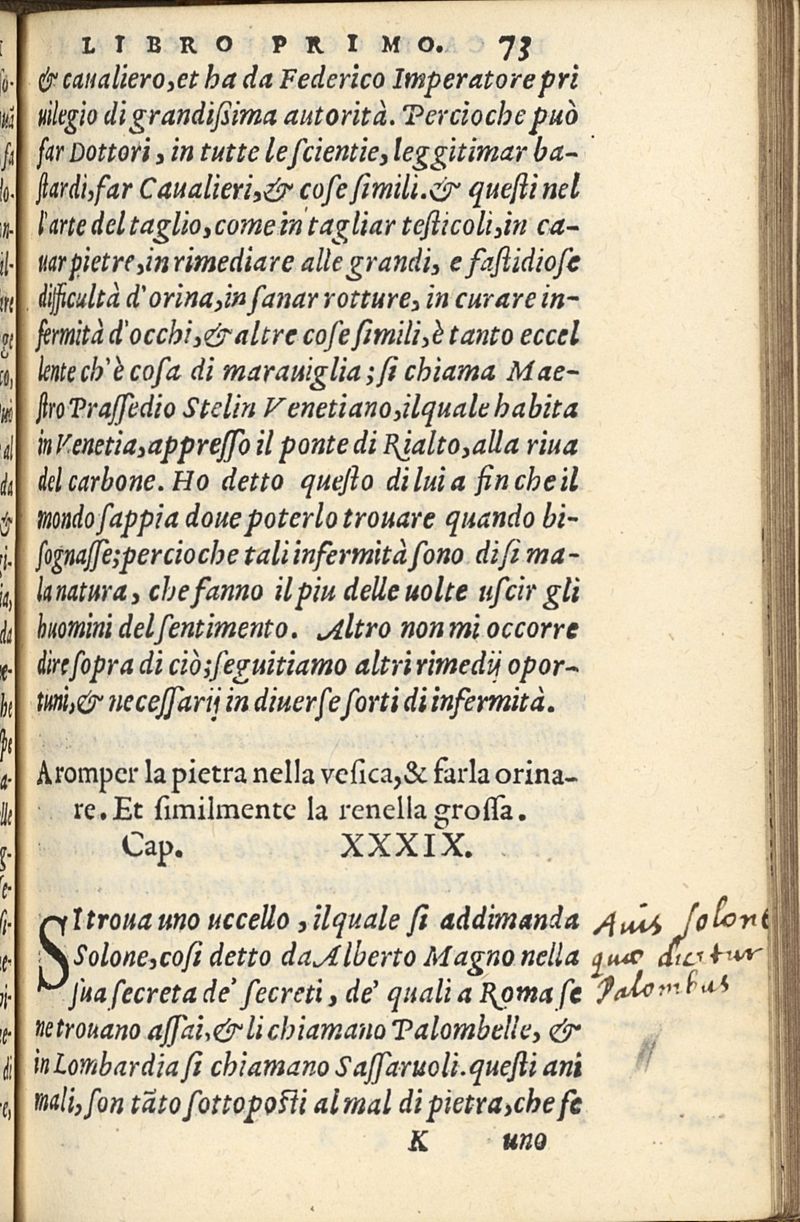 LIBRO PRIMO. 73
& caualiero, et ha da Federico Imperatore pri
uilegio di grandißima autorità. Percioche può
far Dottori, in tutte le scientie, leggitimar ba-
stardi, far Caualieri, & cose simili. & questi nel
l'arte del taglio, come in tagliar testicoli, in ca-
uar pietre, in rimediare alle grandi, e fastidiose
difficultà d'orina, in sanar rotture, in curare in-
fermità d'occhi, & altre cose simili, è tanto eccel
lente ch'è cosa di marauiglia; si chiama Mae-
stro Prassedio Stelin Venetiano, ilquale habita
in Venetia, appresso il ponte di Rialto, alla riua
del carbone. Ho detto questo di lui a fin che il
mondo sappia doue poterlo trouare quando bi-
sognasse; percioche tali infermità sono di si ma-
la natura, che fanno il piu delle uolte uscir gli
huomini del sentimento. Altro non mi occorre
dire sopra di ciò; seguitiamo altri rimedij opor-
tuni, & necessarij in diuerse sorti di infermità.
A romper la pietra nella vesica, & farla orina-
re. Et similmente la renella grossa.
Cap. XXXIX.
SI troua uno uccello, ilquale si addimanda
Solone, cosi detto da Alberto Magno nella
sua secreta de' secreti, de' quali a Roma se
ne trouano assai, & li chiamano Palombelle, &
in Lombardia si chiamano Sassaruoli. questi ani
mali, son tãto sottoposti al mal di pietra, che se
K uno
Auis Solone
quæ dicitur
Palombus